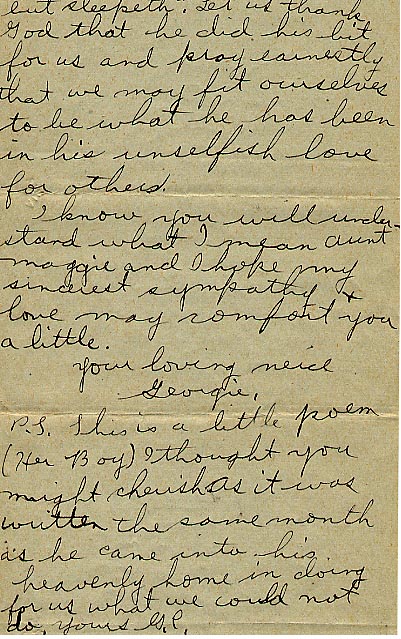 but sleepeth. Let us thank
God that he did his bit
for us and pray earnestly
that we may fit ourselves
to be what he has been
in his unselfish love
for others.
I know you will under-
stand what I mean aunt
maggie and I hope my
sincerest sympathy +
love may comfort you
a little.
your loving neice
Georgie.
P.S. This is a little poem
(Her Boy) I thought you
might cherish as it was
written the same month
as he came into his
heavenly home in doing
for us what we could not
do. yours G.P.